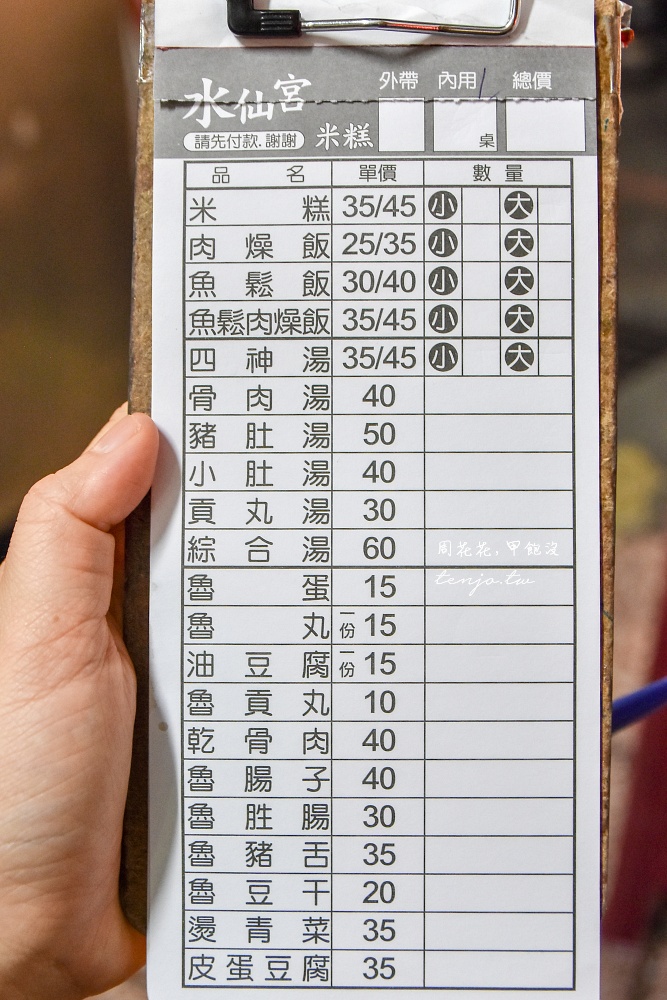 外帶 內用 總價
水仙宮
請先付款.謝謝 米糕 桌
品名 單價 數量
米糕 35/45 小 大
肉燥飯 25/35 小 大
魚鬆飯 30/40 小 大
魚鬆肉燥飯 35/45 小 大
四神湯 35/45 小 大
骨肉湯 40
豬肚湯 50
小肚湯 40
貢丸湯 30
綜合湯 60
周花花,甲飽沒
tenjo.tw
魯蛋 15
魯丸 一份 15
油豆腐 一份 15
魯貢丸 10
乾骨肉 40
魯腸子 40
魯胜腸 30
魯豬舌 35
魯豆干 20
燙青菜 35
皮蛋豆腐 35